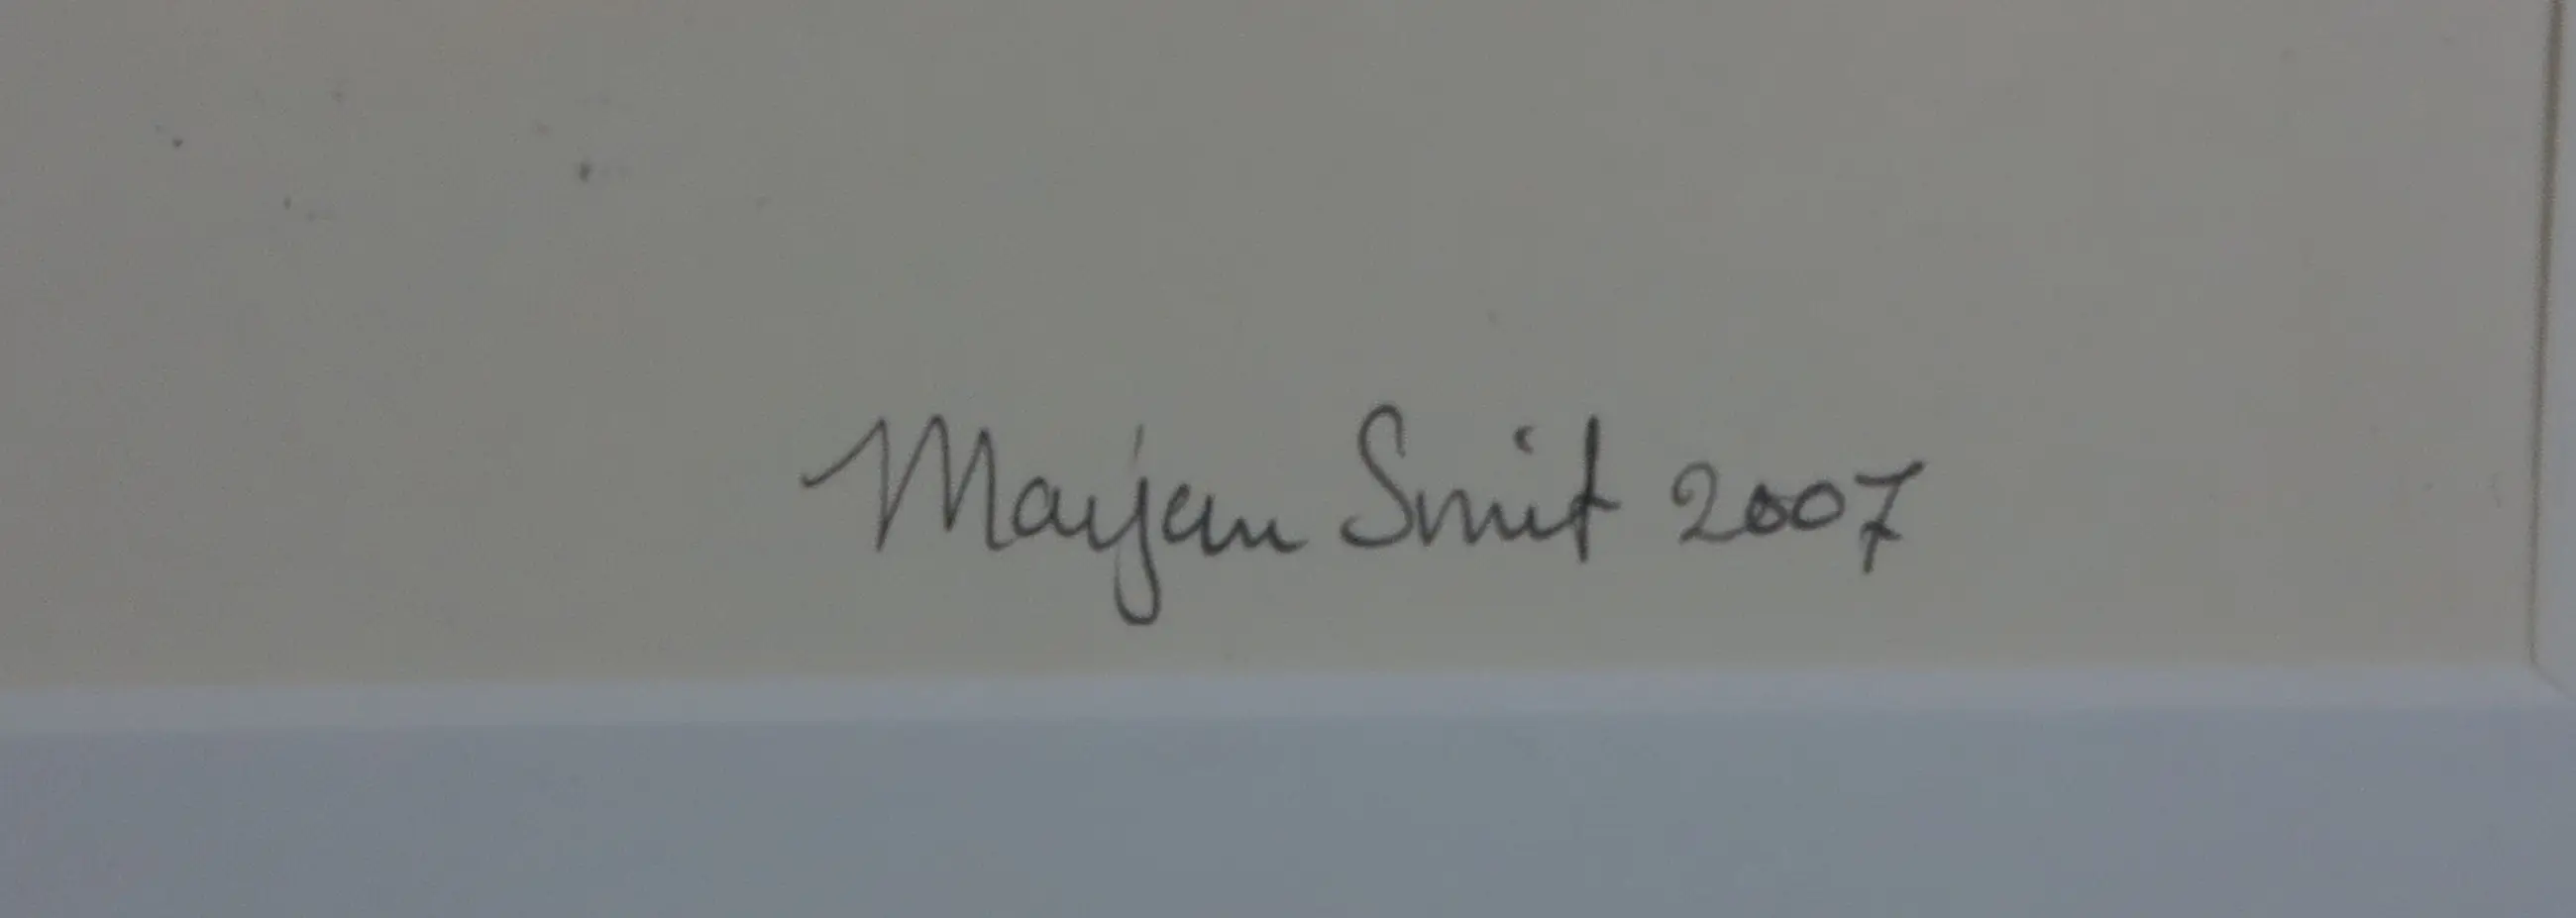 Marjan Smit 2007